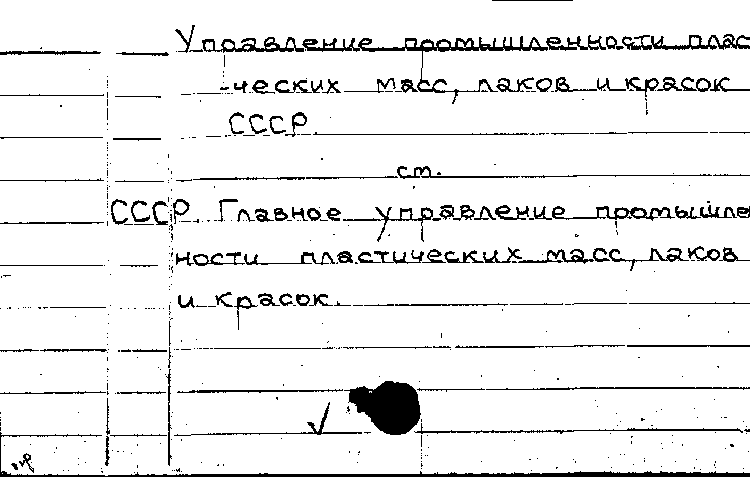 Управление промышленности плас
-ческих масс, лаков и красок
СССР.
см.
СССР. Главное управление промышле
ности пластических масс, лаков
и красок.